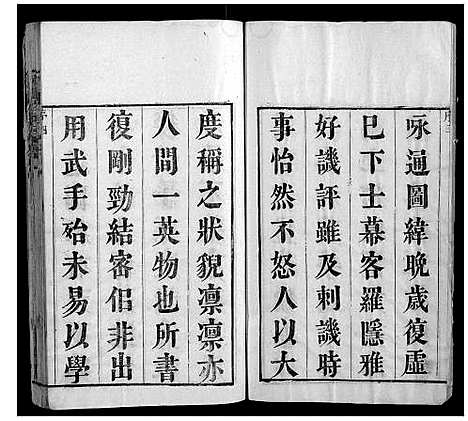 詠通圖緯晚歲復虛
已下士幕客羅隱雅
好譏評雖及刺譏時
事怡然不怒人以大
度稱之狀貌凛凛亦
人間一英物也所書
復剛勁結審似非出
用武手殆未易以學